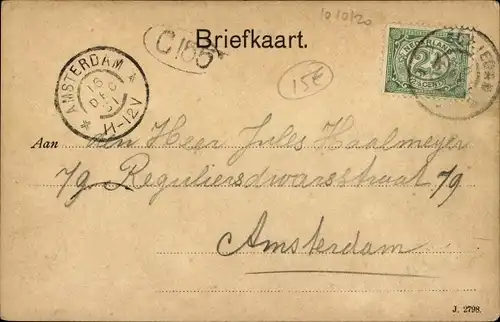 10/10/20
C155
Briefkaart.
15E
NEDERLAND
2½
AMSTERDAM
16
DEC
11-12V
Aan den Heer Jules Haalmeyer
79 Reguliersdwarsstraat 79
Amsterdam
J. 2798.